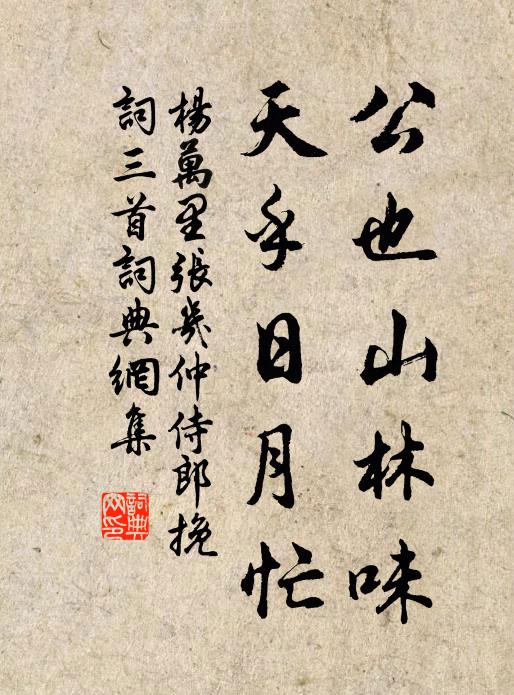 公也山林味
天乎日月忙
楊萬里張幾仲侍郎挽
詞三首詞典網集
詞典網印